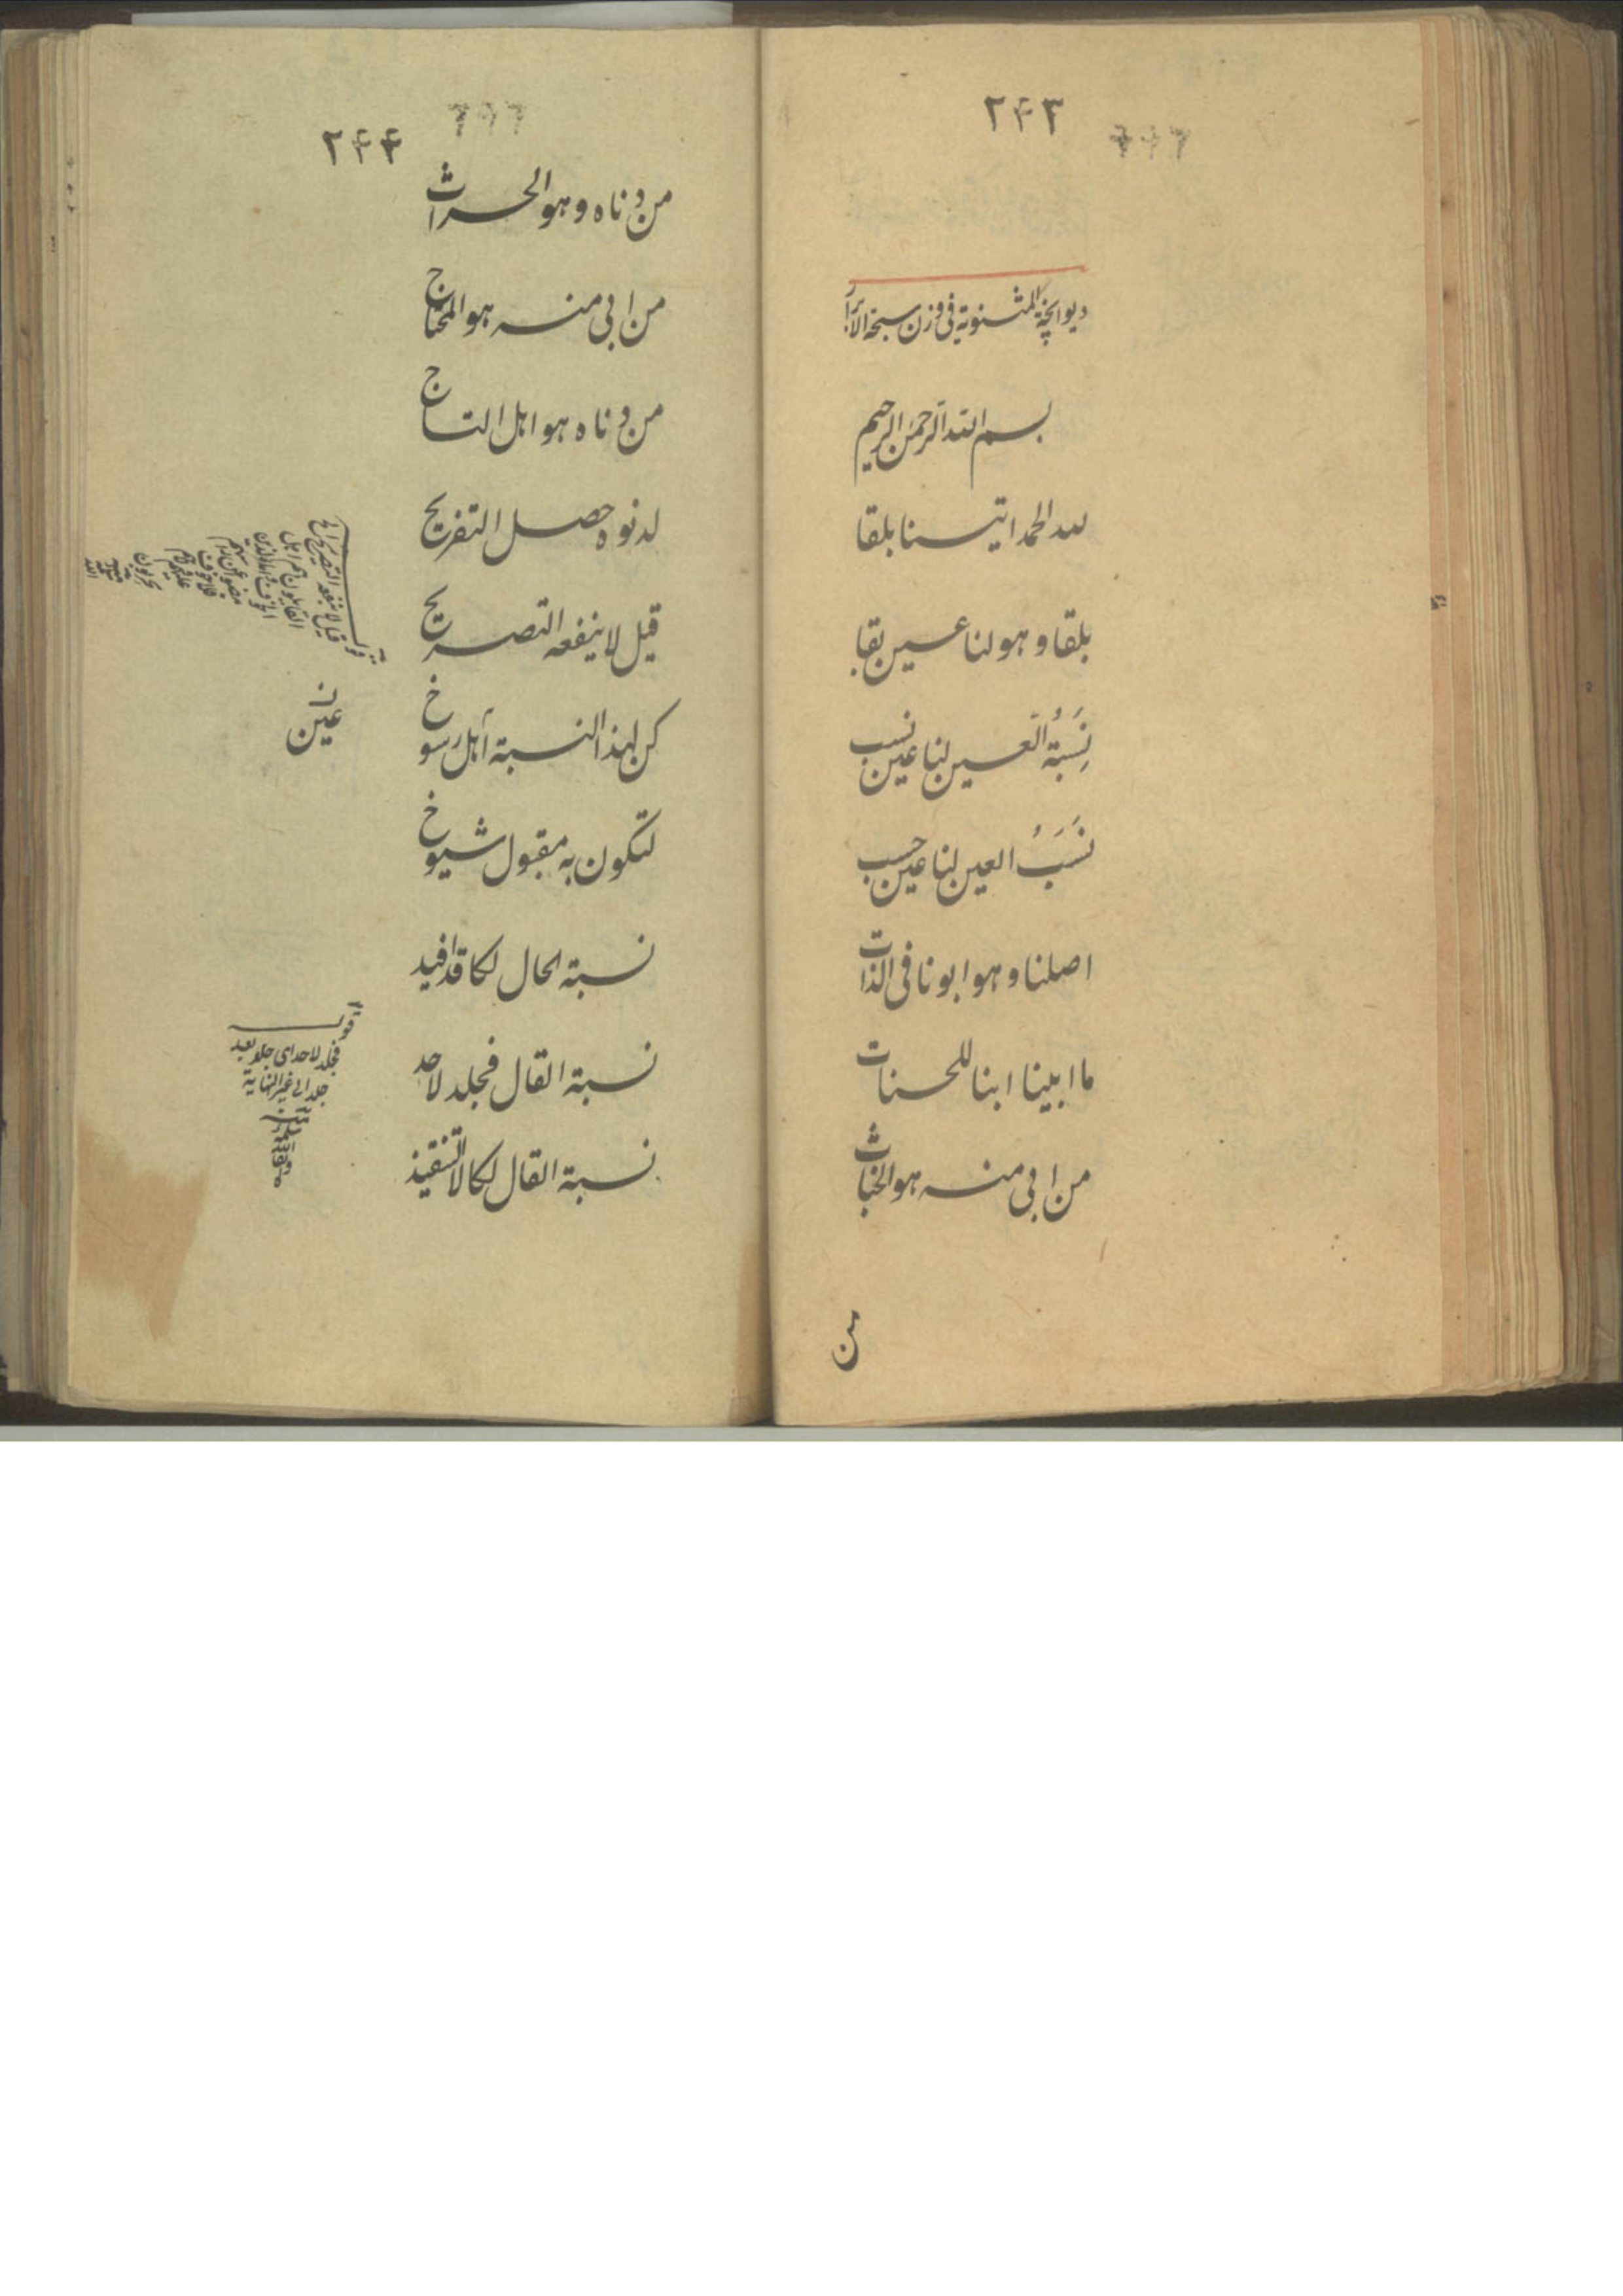 ۲۴۳
دیوانچۀ المثنویة فی وزن سبحة الابرار
بسم الله الرحمن الرحیم
لله الحمد اتیسنا بلقا
بلقا و هو لنا عین بقا
نِسْبَةُ العین لنا عین نسب
نَسَبُ العین لنا عین حسب
اصلنا و هو ابونا فی الذات
ما ابینا ابنا للحسنات
من ابی منه هو الخناث
من
۲۴۴
من دناه و هو الحراث
من ابی منه هو المحتاج
من دناه هو اهل التاج
لدنوه حصل التفریح
قیل لا ینفعه التصریح
کن لهذا النسبة اهل رسوخ
لتکون به مقبول شیوخ
نسبة الحال لکا قد افید
نسبة القال فجلد لاحد
نسبة القال لکا لا تنقیذ
قیل لا ینفعه التصریح
عین
قوله
فجلد لاحد ای جلد بعد
جلد الی غیر النهایة